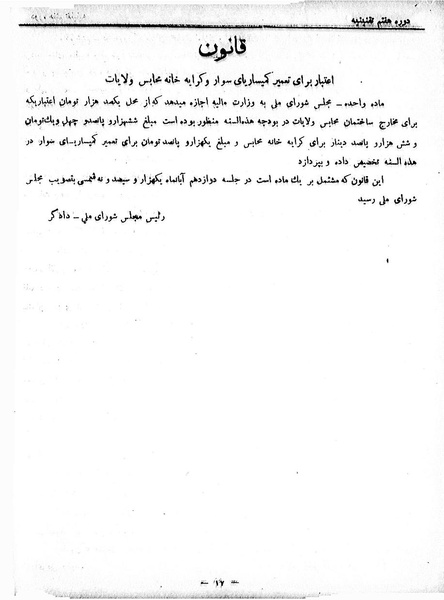 دوره هفتم تقنینیه
قانون
اعتبار برای تعمیر کمیساریای سوار و کرایه خانه محابس ولایات
ماده واحده - مجلس شورای ملی به وزارت مالیه اجازه میدهد که از محل یکصد هزار تومان اعتباریکه
برای مخارج ساختمان محابس ولایات در بودجه هذه‌السنه منظور بوده است مبلغ ششهزارو پانصدو چهل ویکتومان
و شش هزارو پانصد دینار برای کرایه خانه محابس و مبلغ یکهزارو پانصد تومان برای تعمیر کمیساریای سوار در
هذه السنه تخصیص داده و بپردازد
این قانون که مشتمل بر یك ماده است در جلسه دوازدهم آبانماه یکهزار و سیصد و نه شمسی بتصویب مجلس
شورای ملی رسید
رئیس مجلس شورای ملی - دادگر
- ١٦ -